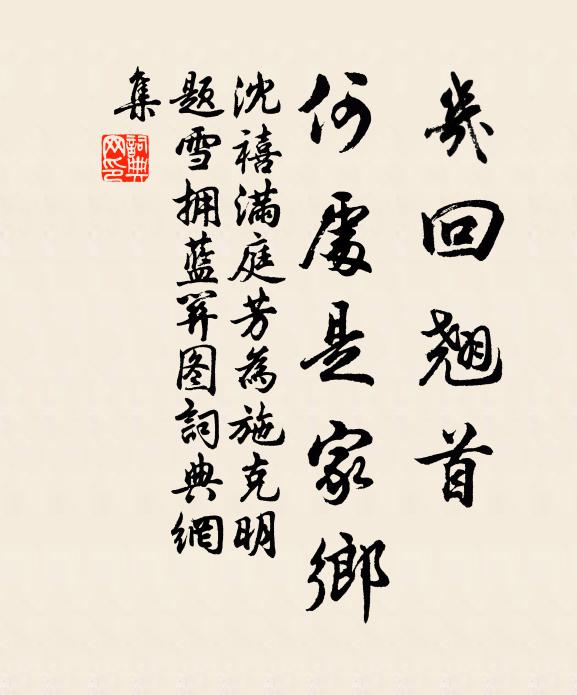 幾回翹首
何處是家鄉
沈禧滿庭芳為施克明
題雪擁藍關图詞典網
集
詞典
网印